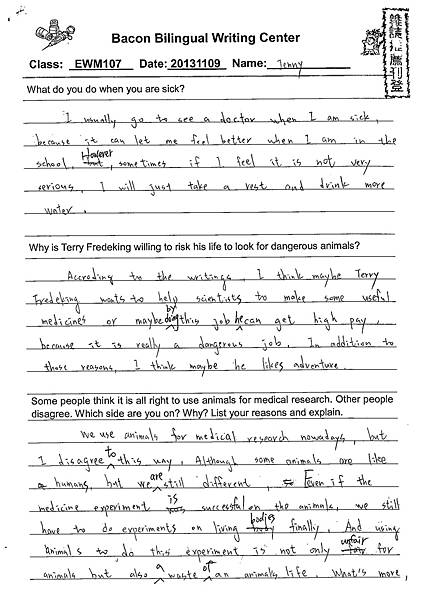 Bacon Bilingual Writing Center
雜誌社
騰刊登
Class: EWM107 Date: 20131109 Name: Jenny
What do you do when you are sick?
I usually go to see a doctor when I am sick,
because it can let me feel better when I am in the
school. However, sometimes if I feel it is not very
serious, I will just take a rest and drink more
water.
Why is Terry Fredeking willing to risk his life to look for dangerous animals?
According to the writings, I think maybe Terry
Fredeking wants to help scientists to make some useful
medicines or maybe by doing this job he can get high pay,
because it is really a dangerous job. In addition to
those reasons, I think maybe he likes adventure.
Some people think it is all right to use animals for medical research. Other people
disagree. Which side are you on? Why? List your reasons and explain.
We use animals for medical research nowadays, but
I disagree to this way. Although some animals are like
humans, but we are still different. Even if the
medicine experiment is successful on the animals, we still
have to do experiments on living bodies finally. And using
animals to do this experiment is not only unfair for
animals but also a waste of an animals life. What's more,